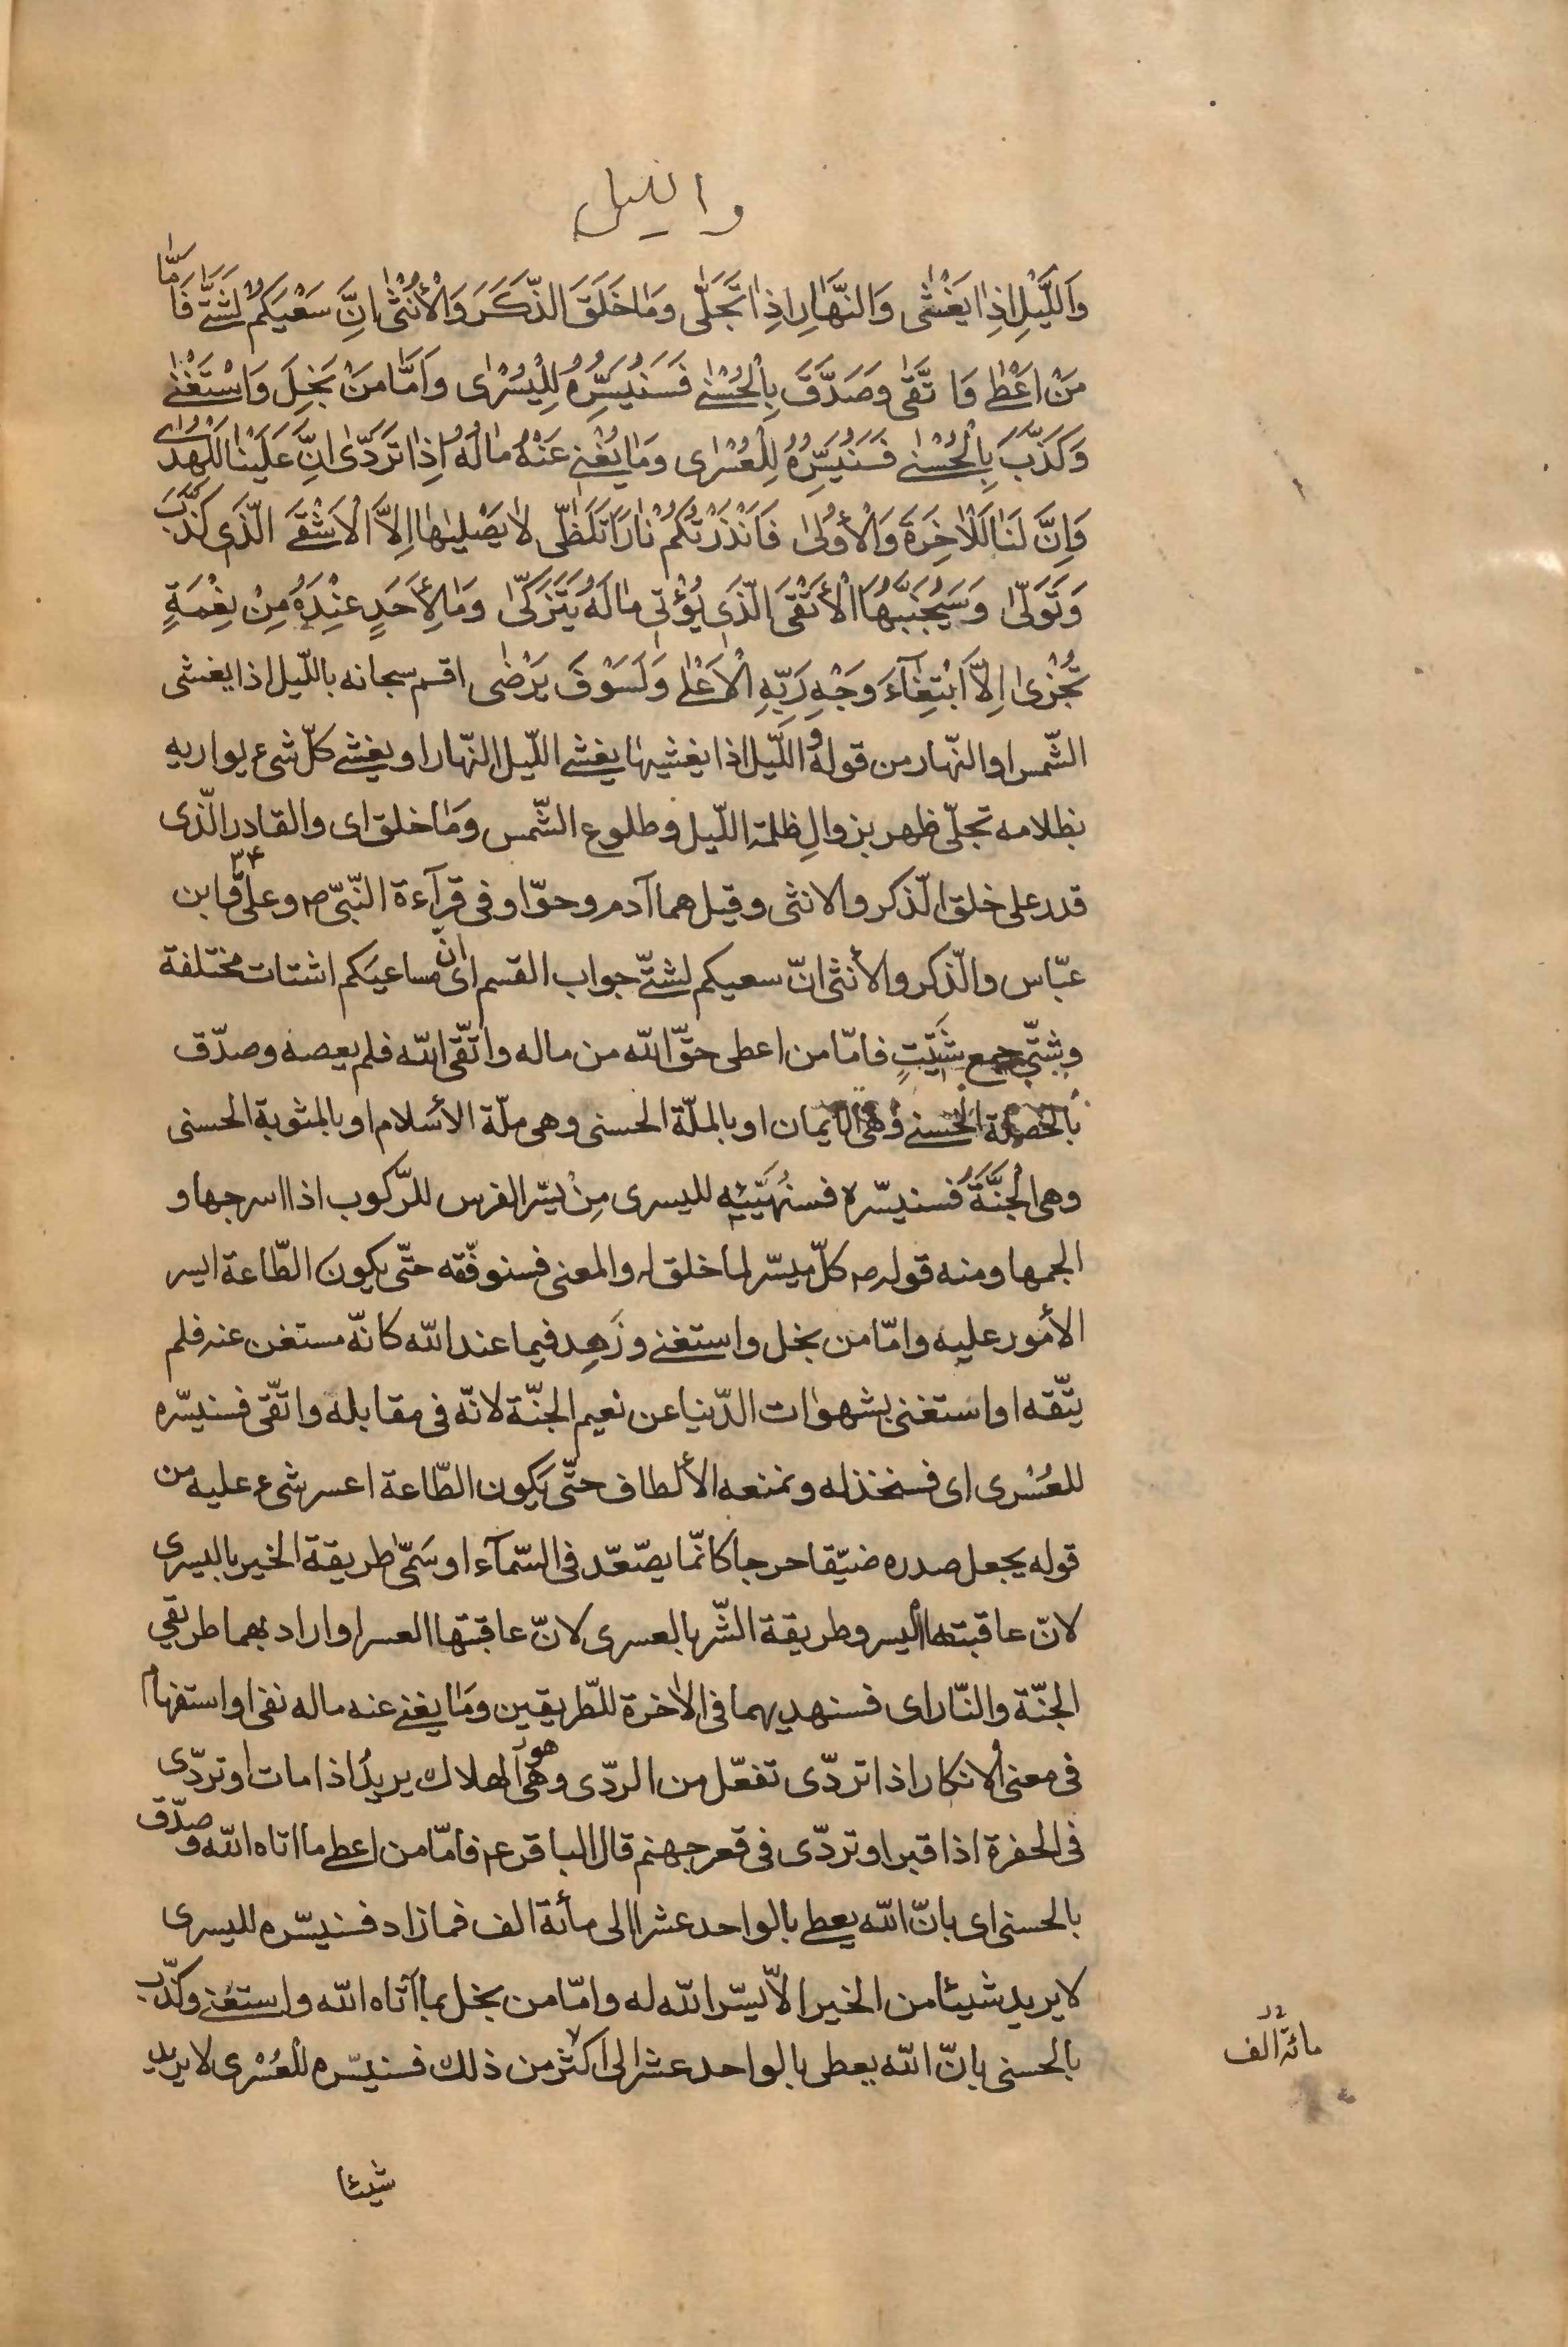 والليل
وَاللَّيْلِ اِذٰا يَغْشٰى وَالنَّهٰارِ اِذٰا تَجَلّٰى وَمٰا خَلَقَ الذَّكَرَ وَالْأُنْثٰى اِنَّ سَعْيَكُمْ لَشَتّٰى فَاَمّٰا
مَنْ اَعْطٰى وَاتَّقٰى وَصَدَّقَ بِالْحُسْنٰى فَسَنُيَسِّرُهُ لِلْيُسْرٰى وَاَمّٰا مَنْ بَخِلَ وَاسْتَغْنٰى
وَكَذَّبَ بِالْحُسْنٰى فَسَنُيَسِّرُهُ لِلْعُسْرٰى وَمٰا يُغْنٖى عَنْهُ مٰالُهُ اِذٰا تَرَدّٰى اِنَّ عَلَيْنٰا لَلْهُدٰى
وَاِنَّ لَنٰا لَلْاٰخِرَةَ وَالْأُولٰى فَاَنْذَرْتُكُمْ نٰارًا تَلَظّٰى لٰا يَصْلٰيهٰا اِلاَّ الْاَشْقَى الَّذٖى كَذَّبَ
وَتَوَلّٰى وَسَيُجَنَّبُهَا الْأَتْقَى الَّذٖى يُؤْتٖى مٰالَهُ يَتَزَكّٰى وَمٰا لِأَحَدٍ عِنْدَهُ مِنْ نِعْمَةٍ
تُجْزٰى اِلاَّ ابْتِغٰآءَ وَجْهِ رَبِّهِ الْاَعْلٰى وَلَسَوْفَ يَرْضٰى اقسم سبحانه بالليل اذا يغشى
الشّمس او النّهار من قوله و اللّيل اذا يغشيها يغشى اللّيل النّهار او يغشى كلّ شىء يواريه
بظلامه تجلّى ظهر بزوالِ ظلمة اللّيل وطلوع الشّمس وَمٰا خلق اى والقادر الّذى
قدر على خلق الذّكر والانثى وقيل هما آدم وحوّا وفى قرآءة النّبىّ ص وعلىّ ع وابن
عبّاس والذّكر والأنثى انّ سعيكم لشتّى جواب القسم اى انّ مساعيَكم اشتات مختلفة
وشتّى جمع شَتيتٍ فامّا من اعطى حقّ الله من ماله واتّقى الله فلم يعصه وصدّق
بالخصلة الحُسنى وهى الايمان او بالملّة الحسنى وهى ملّة الأسلام او بالمثوبة الحسنى
وهى الجَنَّةُ فسنيسّره فسنهَيّئه لليسرى مِنْ يسّر الفرس للرّكوب اذا اسرجها و
الجمها ومنه قوله ص كلّ ميسّر لما خلق له والمعنى فسنوفّقه حتّى يكونَ الطّاعة ايسر
الأمور عليه وامّا من بخل واستغنى وزَهِد فيما عند الله كانّه مستغن عنه فلم
يتّقه او استغنى بشهوٰات الدّنيا عن نعيم الجنّة لانّه فى مقابلة واتّقى فسنيسّره
للعُسْرى اى فسنخذله ونمنعه الألطاف حتّى يَكون الطّاعة اعسر شىء عليه من
قوله يجعل صدره ضيّقا حرجا كانّما يصّعّد فى السّمآء او سَمّىٰ طريقة الخير باليسرى
لانّ عاقبتها اليسر وطريقة الشّر بالعسرى لانّ عاقبتها العسر او اراد بهما طريقى
الجنّة والنّار اى فسنهديهما فى الاٰخرة للطّريقين وَمٰا يغنى عنه ماله نفى او استفهام
فى معنى الانكار اذا تردّى تفعّل من الردّى وهو الهلاك يريدُ اذا مات او تردّى
فى الحفرة اذا قبر او تردّى فى قعر جهنم قال الباقر ع فامّا من اعطى مما اتاه الله وصدّق
بالحسنى اى بانّ الله يعطى بالواحد عشرا الى مأئة الف فما زاد فسنيسّره لليسرى
لا يريد شيئا من الخير الاّ يسّر الله له وامّا من بخل بما آتاه الله واستغنى وكذّب
بالحسنى بانّ الله يعطى بالواحد عشر الى اكثر من ذلك فسنيسّره للعُسْرى لا يريد
مائة الف
شيئا